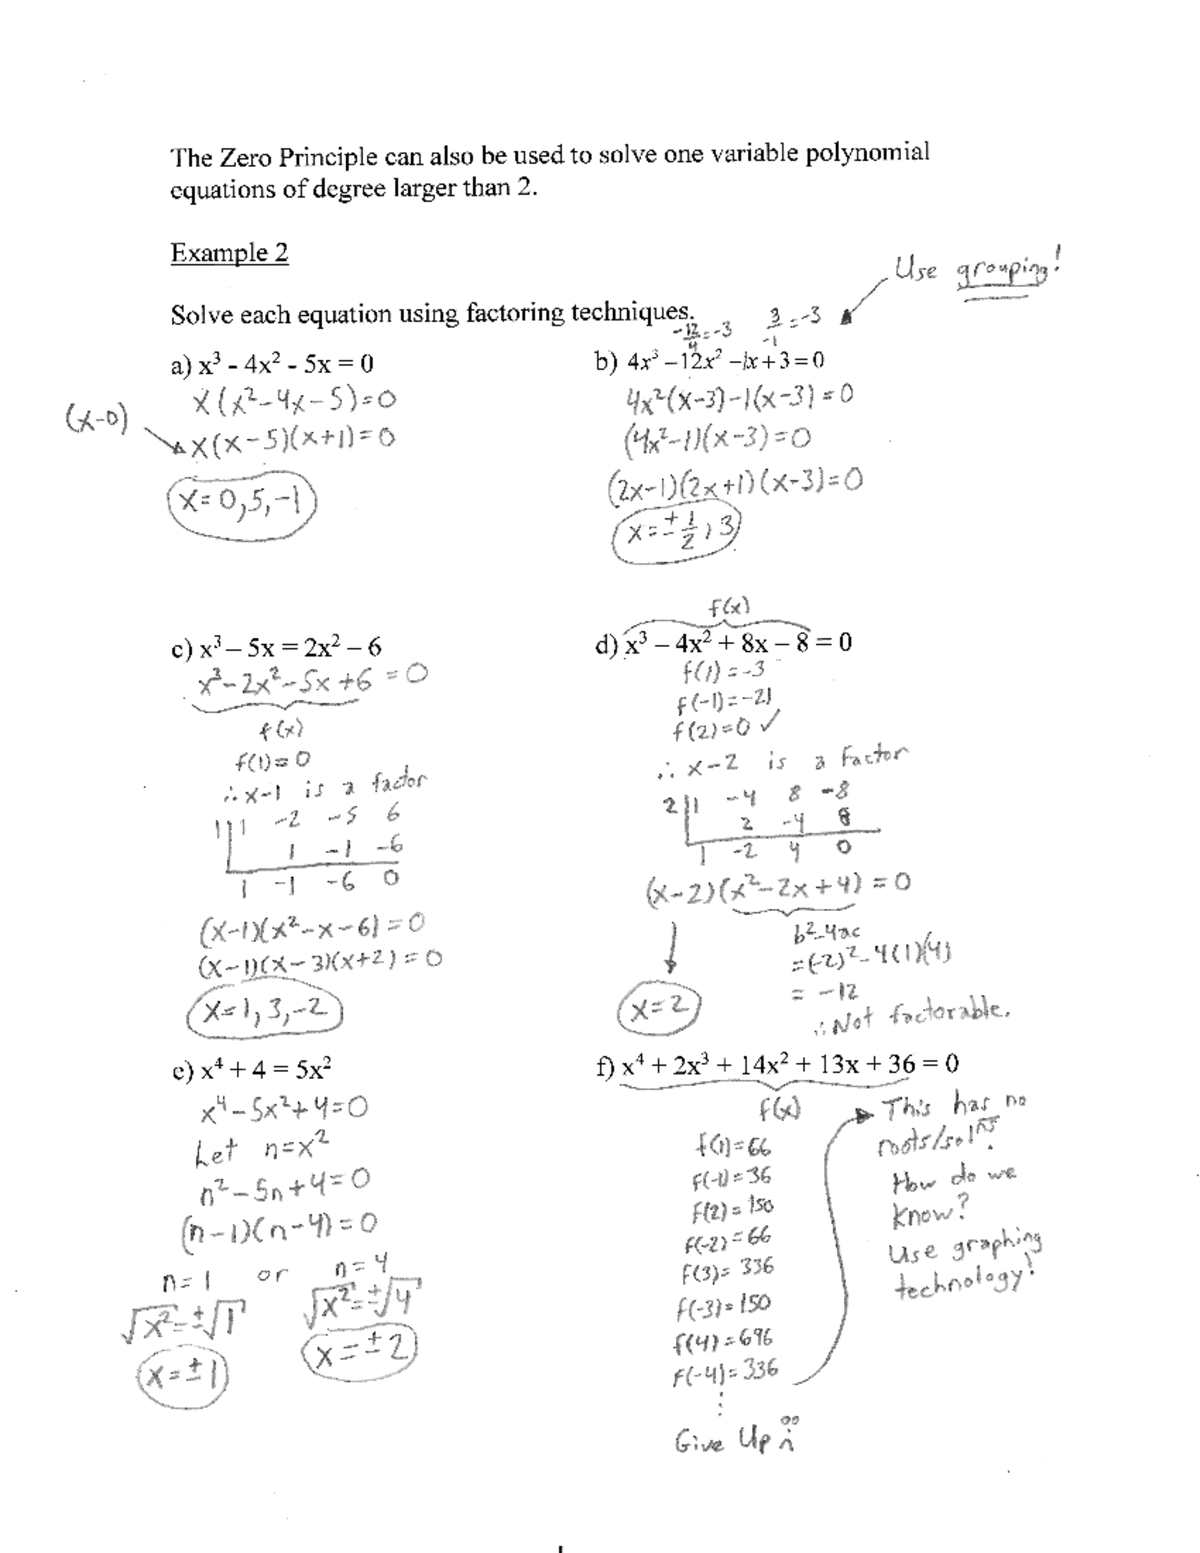 The Zero Principle can also be used to solve one variable polynomial
equations of degree larger than 2.
Example 2
Use grouping!
Solve each equation using factoring techniques.
-12/4 = -3
3/-1 = -3
a) x³ - 4x² - 5x = 0
x(x²-4x-5)=0
(x-0)
x(x-5)(x+1)=0
x=0,5,-1
b) 4x³ –12x² –1x+3=0
4x²(x-3)-1(x-3)=0
(4x²-1)(x-3)=0
(2x-1)(2x+1)(x-3)=0
x=±1/2, 3
c) x³ – 5x = 2x² – 6
x³-2x²-5x+6=0
f(x)
f(1)=0
∴ x-1 is a factor
1| 1 -2 -5 6
1 -1 -6
1 -1 -6 0
(x-1)(x²-x-6)=0
(x-1)(x-3)(x+2)=0
x=1,3,-2
f(x)
d) x³ – 4x² + 8x – 8 = 0
f(1)=-3
f(-1)=-21
f(2)=0 ✓
∴ x-2 is a factor
2| 1 -4 8 -8
2 -4 8
1 -2 4 0
(x-2)(x²-2x+4)=0
b²-4ac
=(-2)²-4(1)(4)
= -12
∴ Not factorable.
x=2
e) x⁴ + 4 = 5x²
x⁴-5x²+4=0
Let n=x²
n²-5n+4=0
(n-1)(n-4)=0
n=1 or n=4
√x²=±√1 √x²=±√4
x=±1 x=±2
f) x⁴ + 2x³ + 14x² + 13x + 36 = 0
f(x)
f(1)=66
f(-1)=36
f(2)=150
f(-2)=66
f(3)=336
f(-3)=150
f(4)=696
f(-4)=336
⋮
Give Up
This has no
roots/solⁿˢ.
How do we
know?
Use graphing
technology!